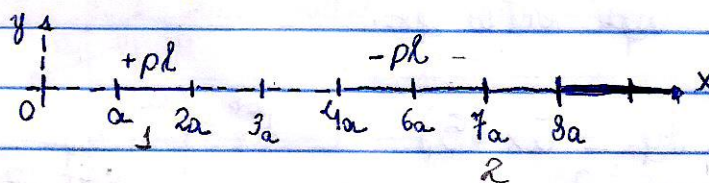 y
+ρl -ρl
x
0 a 2a 3a 4a 6a 7a 8a
1 2